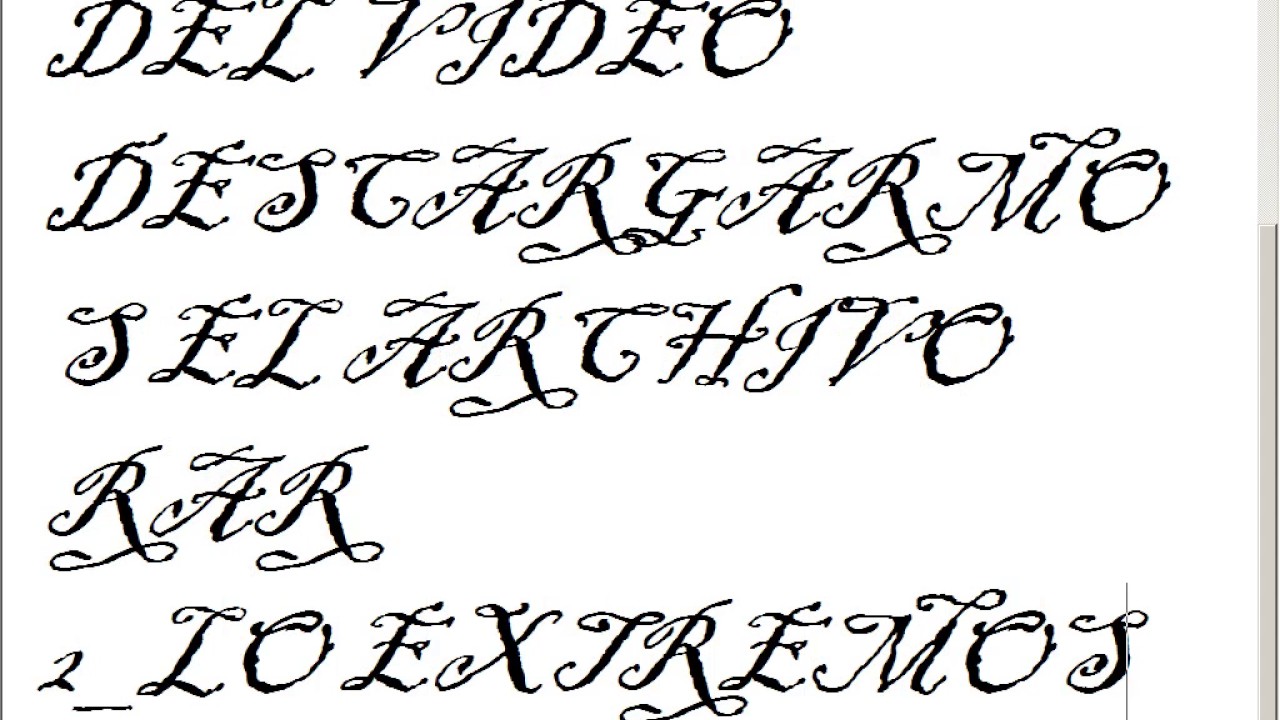 DEL VIDEO
DESCARGARMO
S EL ARCHIVO
RAR
2_LO EXTREMOS